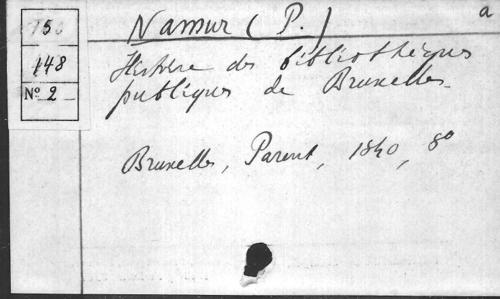 150
148
Nº 2
Namur (P.)
a
Histoire des bibliothèques
publiques de Bruxelles.
Bruxelles, Parent, 1840, 8º